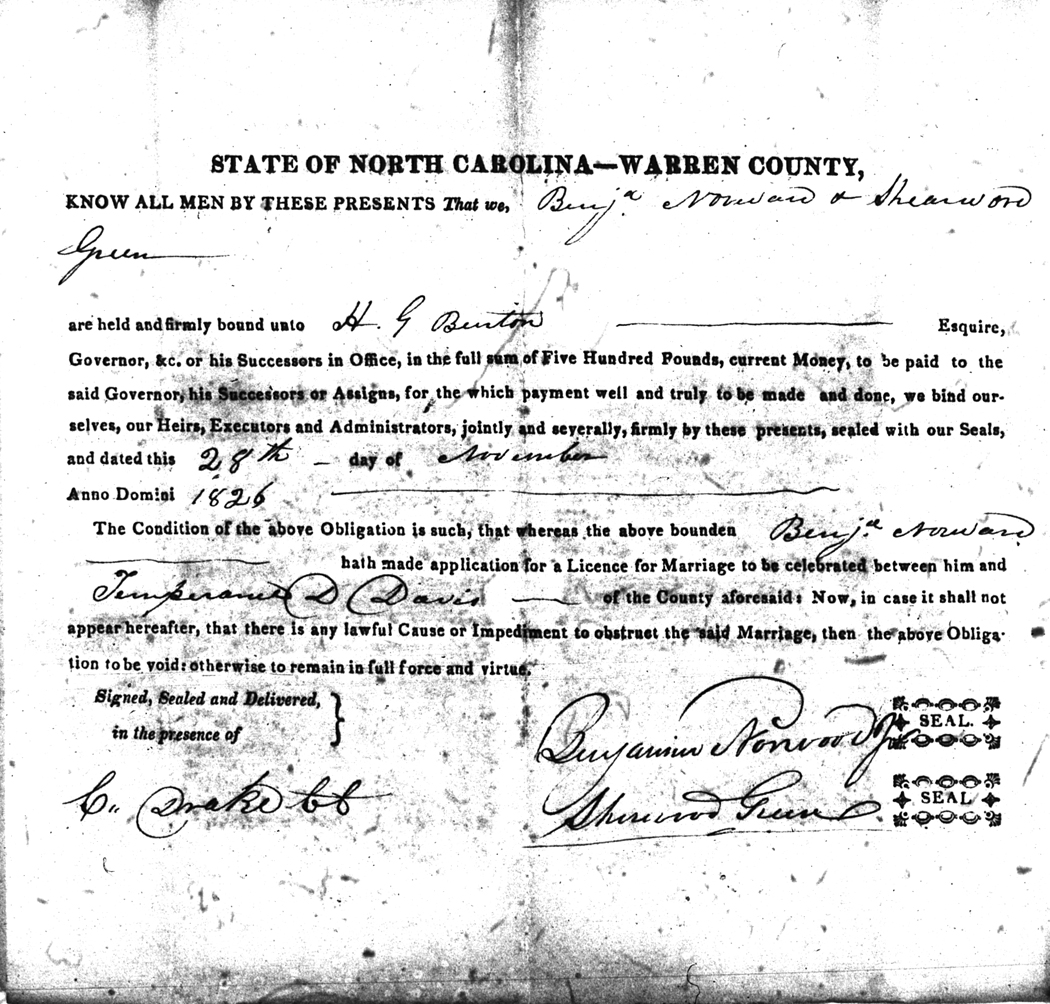 STATE OF NORTH CAROLINA—WARREN COUNTY,
KNOW ALL MEN BY THESE PRESENTS That we, Benjª Norward & Shearword
Green
are held and firmly bound unto H. G Burton Esquire,
Governor, &c. or his Successors in Office, in the full sum of Five Hundred Pounds, current Money, to be paid to the
said Governor, his Successors or Assigns, for the which payment well and truly to be made and done, we bind our-
selves, our Heirs, Executors and Administrators, jointly and severally, firmly by these presents, sealed with our Seals,
and dated this 28th day of November
Anno Domini 1826
The Condition of the above Obligation is such, that whereas the above bounden Benjª Norward
hath made application for a Licence for Marriage to be celebrated between him and
Temperance D Davis of the County aforesaid: Now, in case it shall not
appear hereafter, that there is any lawful Cause or Impediment to obstruct the said Marriage, then the above Obliga-
tion to be void: otherwise to remain in full force and virtue.
Signed, Sealed and Delivered,
in the presence of
Benjamin Norwood Jr SEAL.
C. Drake CC
Sherwood Green SEAL